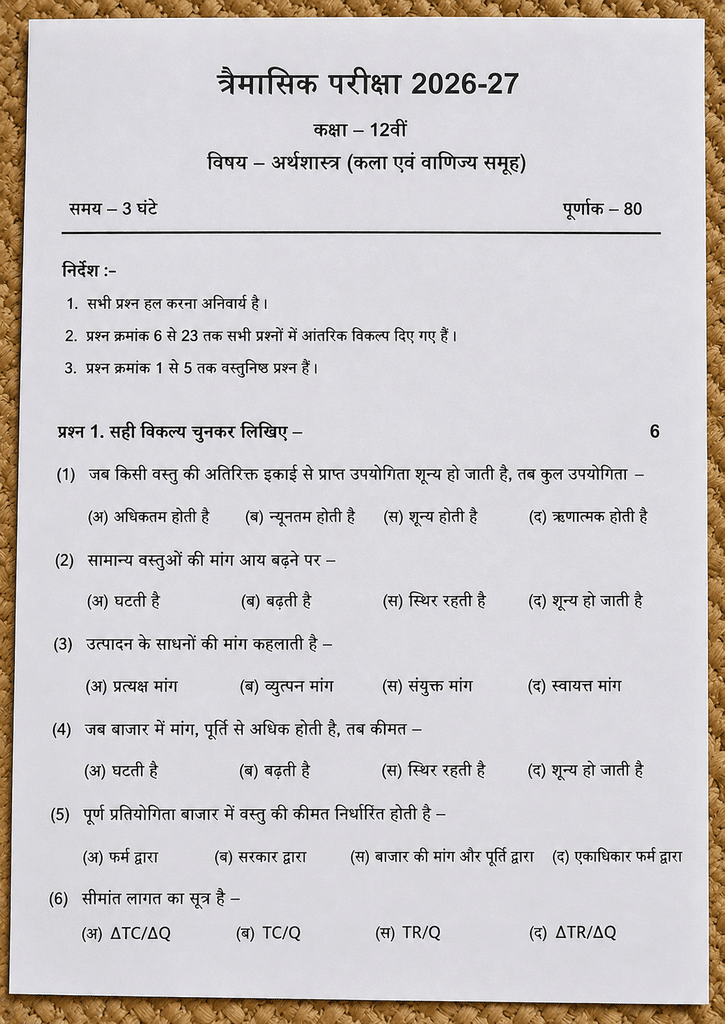 त्रैमासिक परीक्षा 2026-27
कक्षा – 12वीं
विषय – अर्थशास्त्र (कला एवं वाणिज्य समूह)
समय – 3 घंटे पूर्णाक – 80
निर्देश :-
1. सभी प्रश्न हल करना अनिवार्य है।
2. प्रश्न क्रमांक 6 से 23 तक सभी प्रश्नों में आंतरिक विकल्प दिए गए हैं।
3. प्रश्न क्रमांक 1 से 5 तक वस्तुनिष्ठ प्रश्न हैं।
प्रश्न 1. सही विकल्य चुनकर लिखिए – 6
(1) जब किसी वस्तु की अतिरिक्त इकाई से प्राप्त उपयोगिता शून्य हो जाती है, तब कुल उपयोगिता –
(अ) अधिकतम होती है (ब) न्यूनतम होती है (स) शून्य होती है (द) ऋणात्मक होती है
(2) सामान्य वस्तुओं की मांग आय बढ़ने पर –
(अ) घटती है (ब) बढ़ती है (स) स्थिर रहती है (द) शून्य हो जाती है
(3) उत्पादन के साधनों की मांग कहलाती है –
(अ) प्रत्यक्ष मांग (ब) व्युत्पन मांग (स) संयुक्त मांग (द) स्वायत्त मांग
(4) जब बाजार में मांग, पूर्ति से अधिक होती है, तब कीमत –
(अ) घटती है (ब) बढ़ती है (स) स्थिर रहती है (द) शून्य हो जाती है
(5) पूर्ण प्रतियोगिता बाजार में वस्तु की कीमत निर्धारित होती है –
(अ) फर्म द्वारा (ब) सरकार द्वारा (स) बाजार की मांग और पूर्ति द्वारा (द) एकाधिकार फर्म द्वारा
(6) सीमांत लागत का सूत्र है –
(अ) ΔTC/ΔQ (ब) TC/Q (स) TR/Q (द) ΔTR/ΔQ